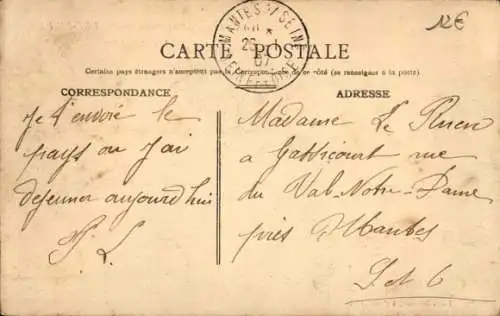 12€
MANTES S/SEINE
29 -1
07
SEINE-ET-OISE
CARTE POSTALE
Certains pays étrangers n'acceptent pas la Correspondance de ce côté (se renseigner à la poste).
CORRESPONDANCE
Je t'envoie le
pays ou j'ai
dejeuner aujourd'hui
ADRESSE
Madame Le
a Gassicourt rue
du Val-Notre-Dame
près Mantes
S et O